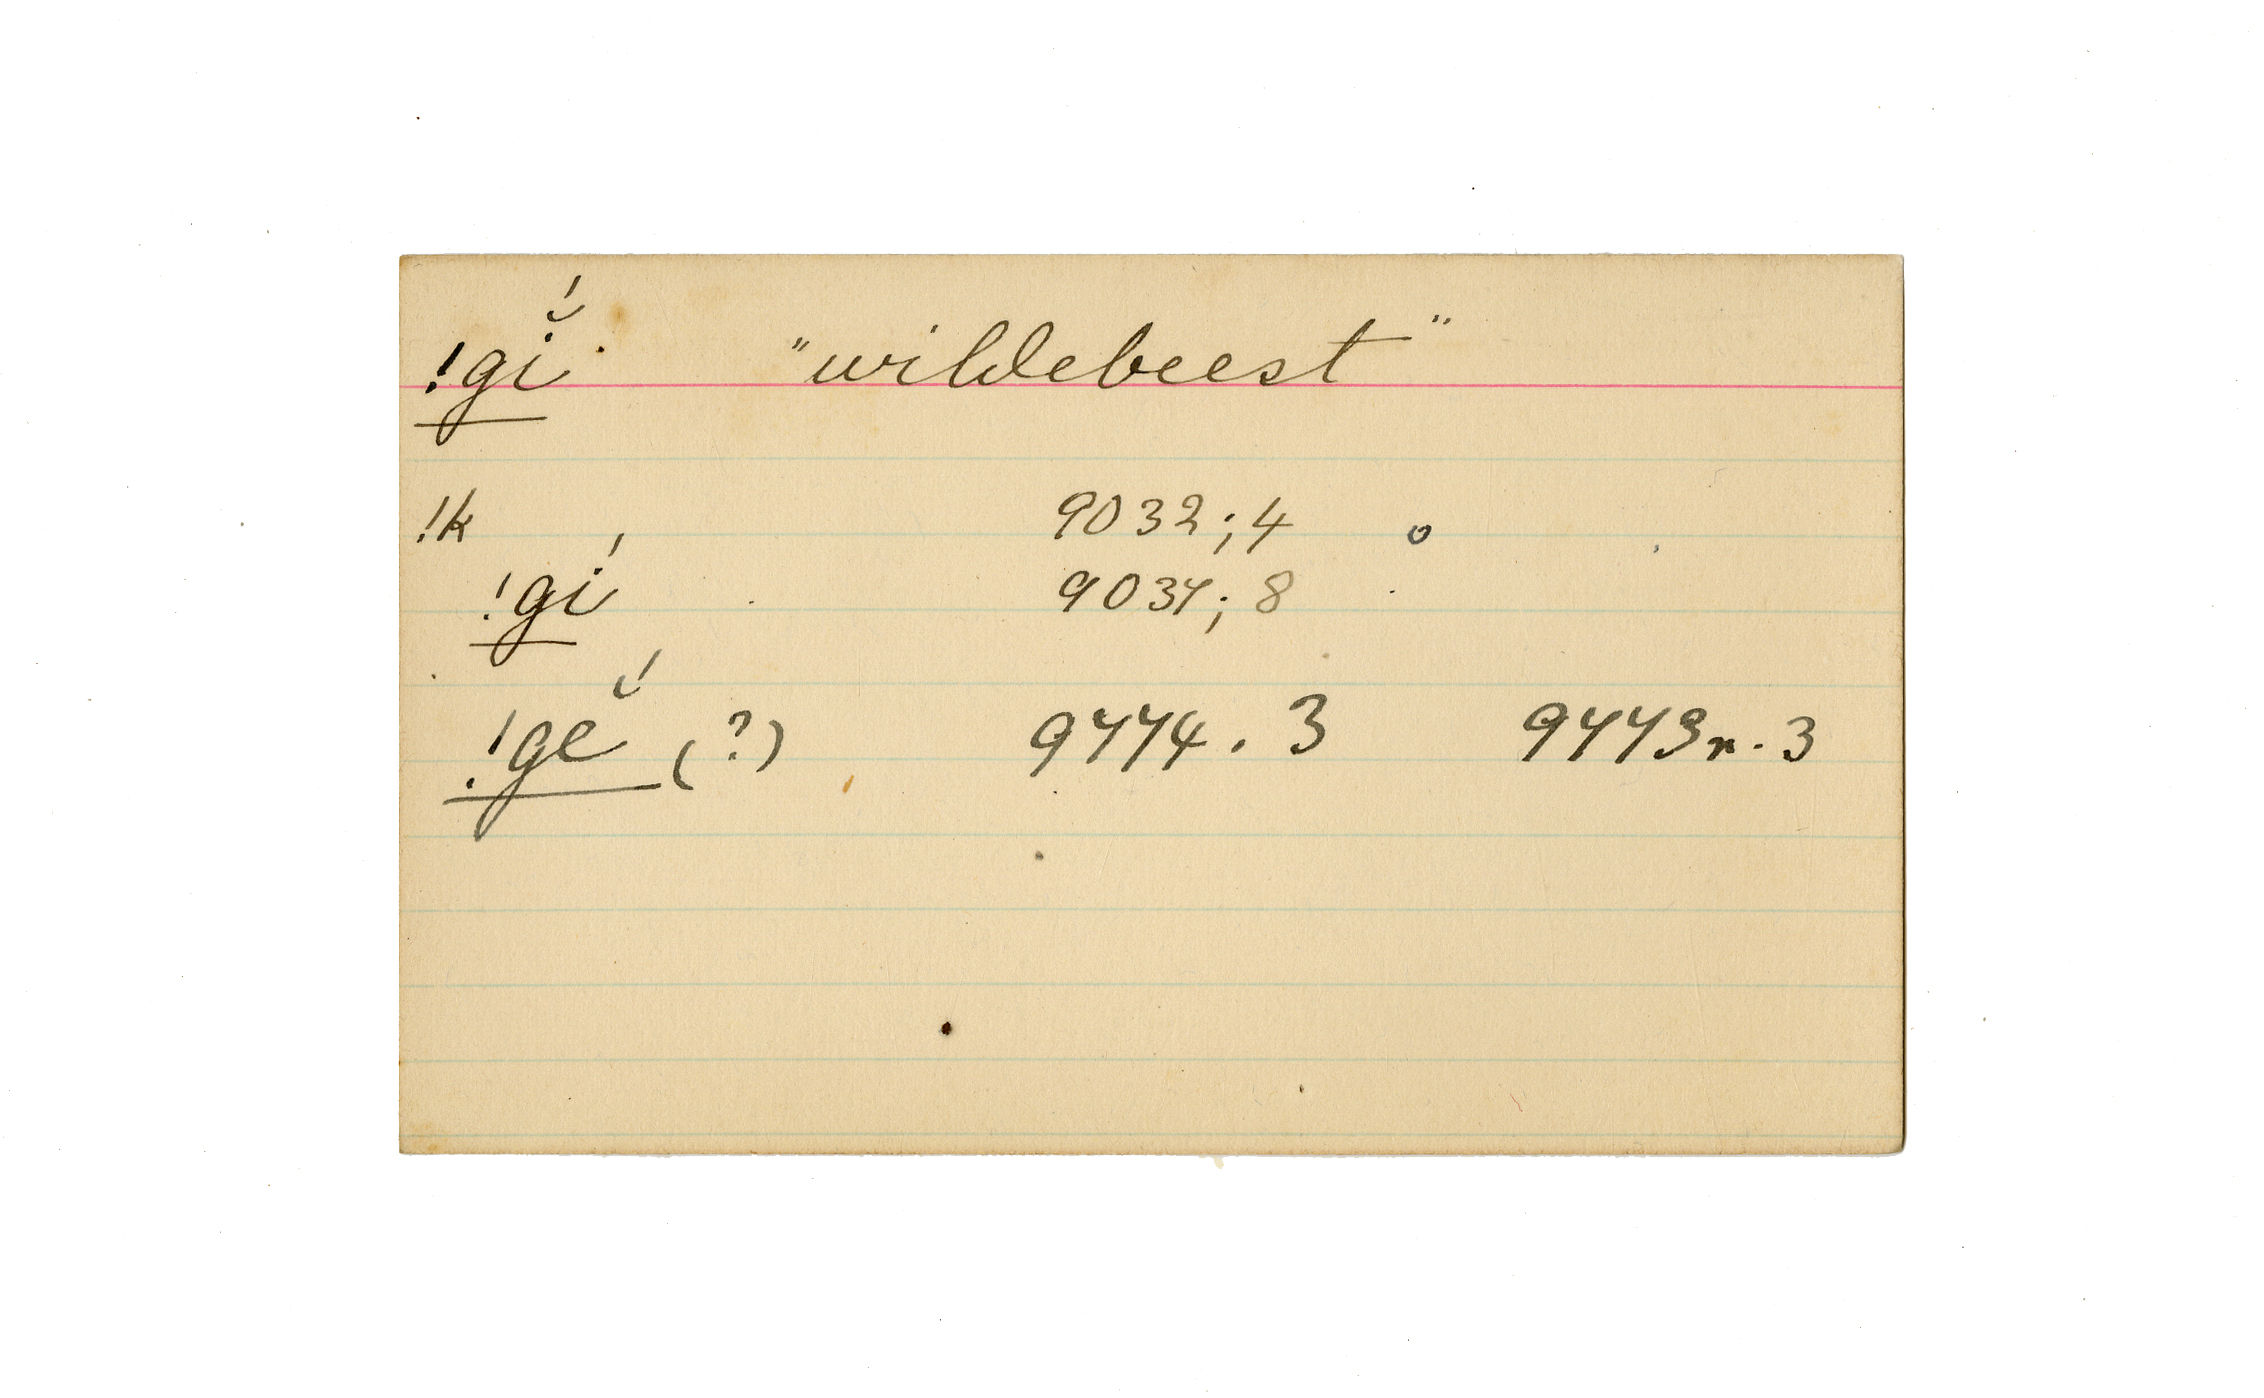 !gĭ́ "wildebeest"
!k 9032;4 o
!gí 9037;8
!gĕ́ (?) 9774.3 9773r.3